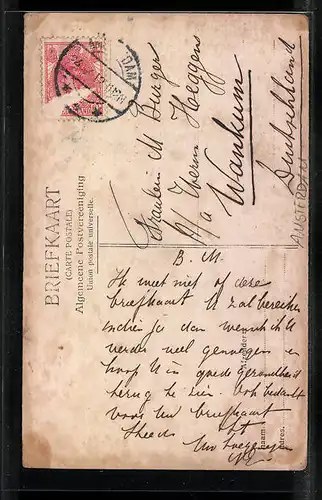 BRIEFKAART
(CARTE POSTALE)
Algemeene Postvereeniging
Union postale universelle.
DAM
Fräulein M Burger
p/a Herrn Heggens
Wankum
Deutschland
AMSTERDAM
B. M.
Ik weet niet of deze
briefkaart U zal bereiken
is dan wensch ik U
verder veel genoegen en
hoop U in goede gezondheid
terug te zien. Ook bedankt
voor Uw briefkaart
Afzender
naam
adres.